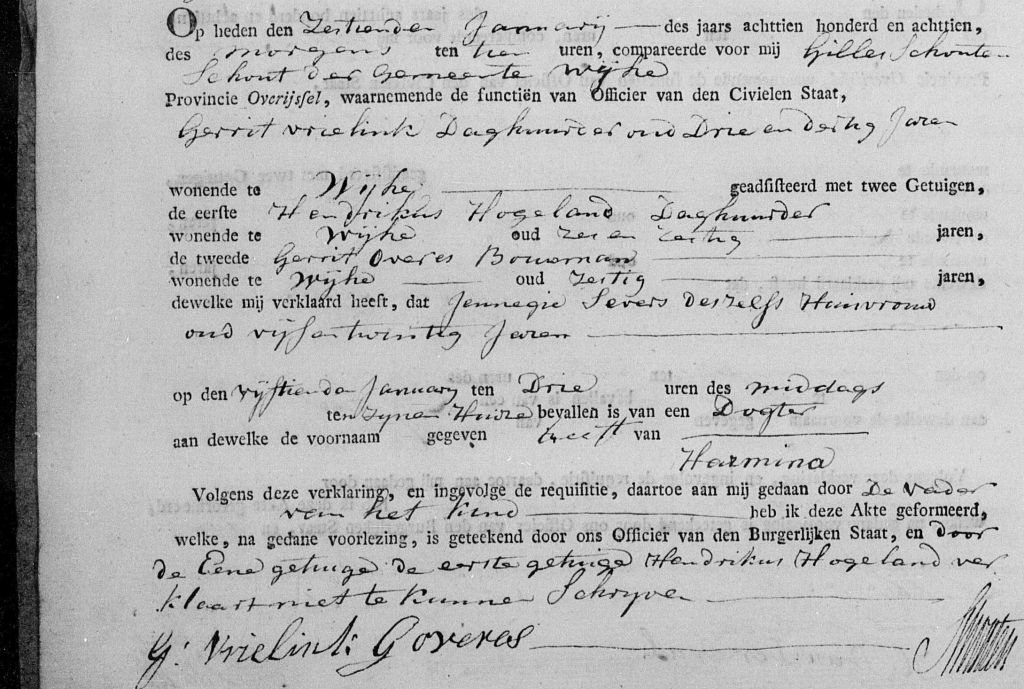 Op heden den Zestienden Januarij des jaars achttien honderd en achttien,
des morgens ten tien uren, compareerde voor mij Gilles Schouten
Schout der Gemeente Wijhe
Provincie Overijssel, waarnemende de functiën van Officier van den Civielen Staat,
Gerrit Vrielink Daghuurder oud Drie en dertig Jaren
wonende te Wijhe geadsisteerd met twee Getuigen,
de eerste Hendrikus Hogeland Daghuurder
wonende te Wijhe oud zes en zestig jaren,
de tweede Gerrit Overes Bouwman
wonende te Wijhe oud zestig jaren,
dewelke mij verklaard heeft, dat Jennegie Severs deszelfs Huisvrouw
oud vijf en twintig Jaren
op den vijftiende January ten Drie uren des middags
ten zynen Huize bevallen is van een Dogter
aan dewelke de voornaam gegeven heeft van
Harmina
Volgens deze verklaring, en ingevolge de requisitie, daartoe aan mij gedaan door De vader
van het kind heb ik deze Akte geformeerd,
welke, na gedane voorlezing, is geteekend door ons Officier van den Burgerlijken Staat, en door
de Eene getuige de eerste getuige Hendrikus Hogeland ver
klaart niet te kunnen Schryven
G: Vrielink: Goveres